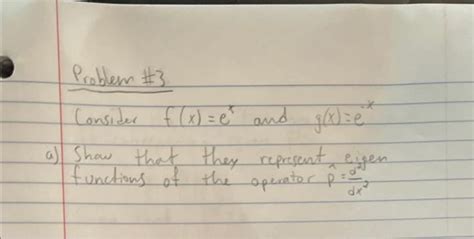 Problem #3
Consider f(x) = eˣ and g(x) = e⁻ˣ
a) Show that they represent eigen
functions of the operator p̂ = d²/dx²